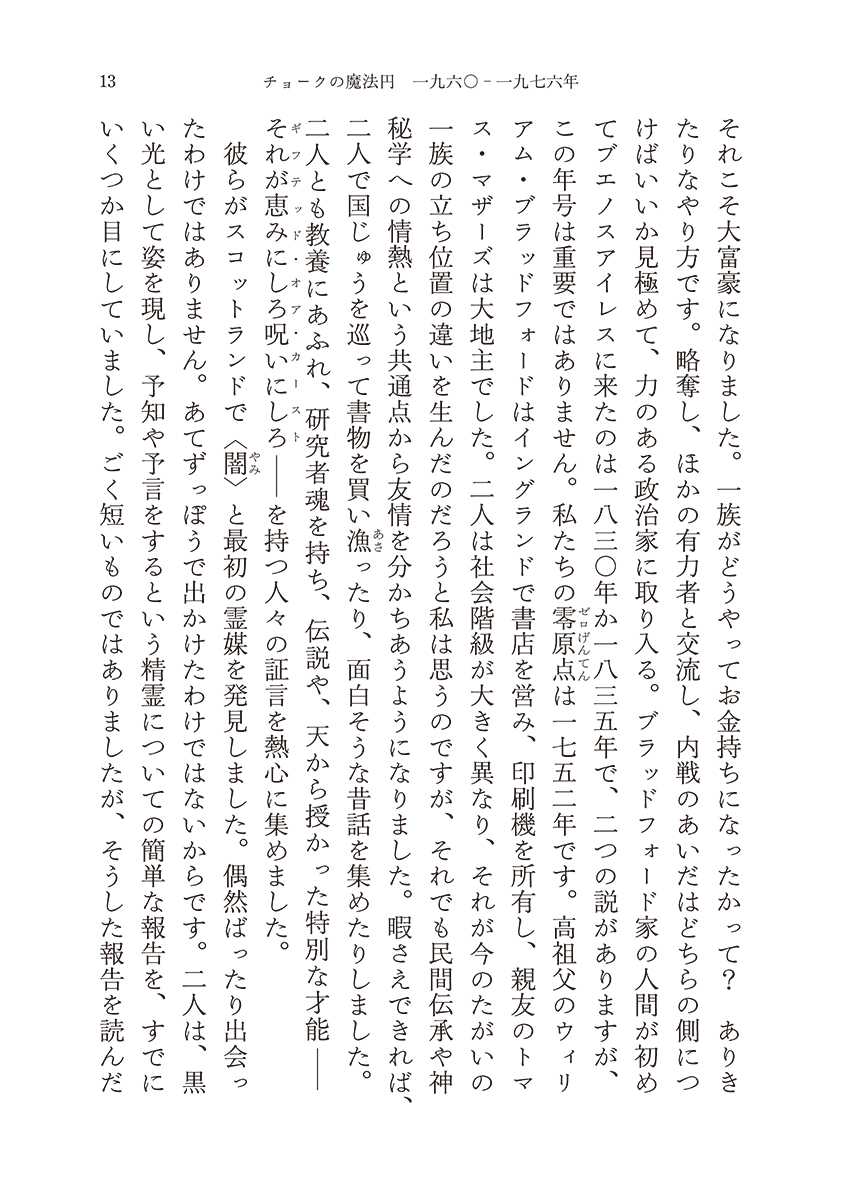 13
チョークの魔法円　一九六〇‐一九七六年
それこそ大富豪になりました。一族がどうやってお金持ちになったかって？　ありき
たりなやり方です。略奪し、ほかの有力者と交流し、内戦のあいだはどちらの側につ
けばいいか見極めて、力のある政治家に取り入る。ブラッドフォード家の人間が初め
てブエノスアイレスに来たのは一八三〇年か一八三五年で、二つの説がありますが、
この年号は重要ではありません。私たちの零原点は一七五二年です。高祖父のウィリ
ゼロげんてん
アム・ブラッドフォードはイングランドで書店を営み、印刷機を所有し、親友のトマ
ス・マザーズは大地主でした。二人は社会階級が大きく異なり、それが今のたがいの
一族の立ち位置の違いを生んだのだろうと私は思うのですが、それでも民間伝承や神
秘学への情熱という共通点から友情を分かちあうようになりました。暇さえできれば、
二人で国じゅうを巡って書物を買い漁ったり、面白そうな昔話を集めたりしました。
あさ
二人とも教養にあふれ、研究者魂を持ち、伝説や、天から授かった特別な才能――
それが恵みにしろ呪いにしろ――を持つ人々の証言を熱心に集めました。
ギフテッド・オア・カースト
　彼らがスコットランドで〈闇〉と最初の霊媒を発見しました。偶然ばったり出会っ
やみ
たわけではありません。あてずっぽうで出かけたわけではないからです。二人は、黒
い光として姿を現し、予知や予言をするという精霊についての簡単な報告を、すでに
いくつか目にしていました。ごく短いものではありましたが、そうした報告を読んだ